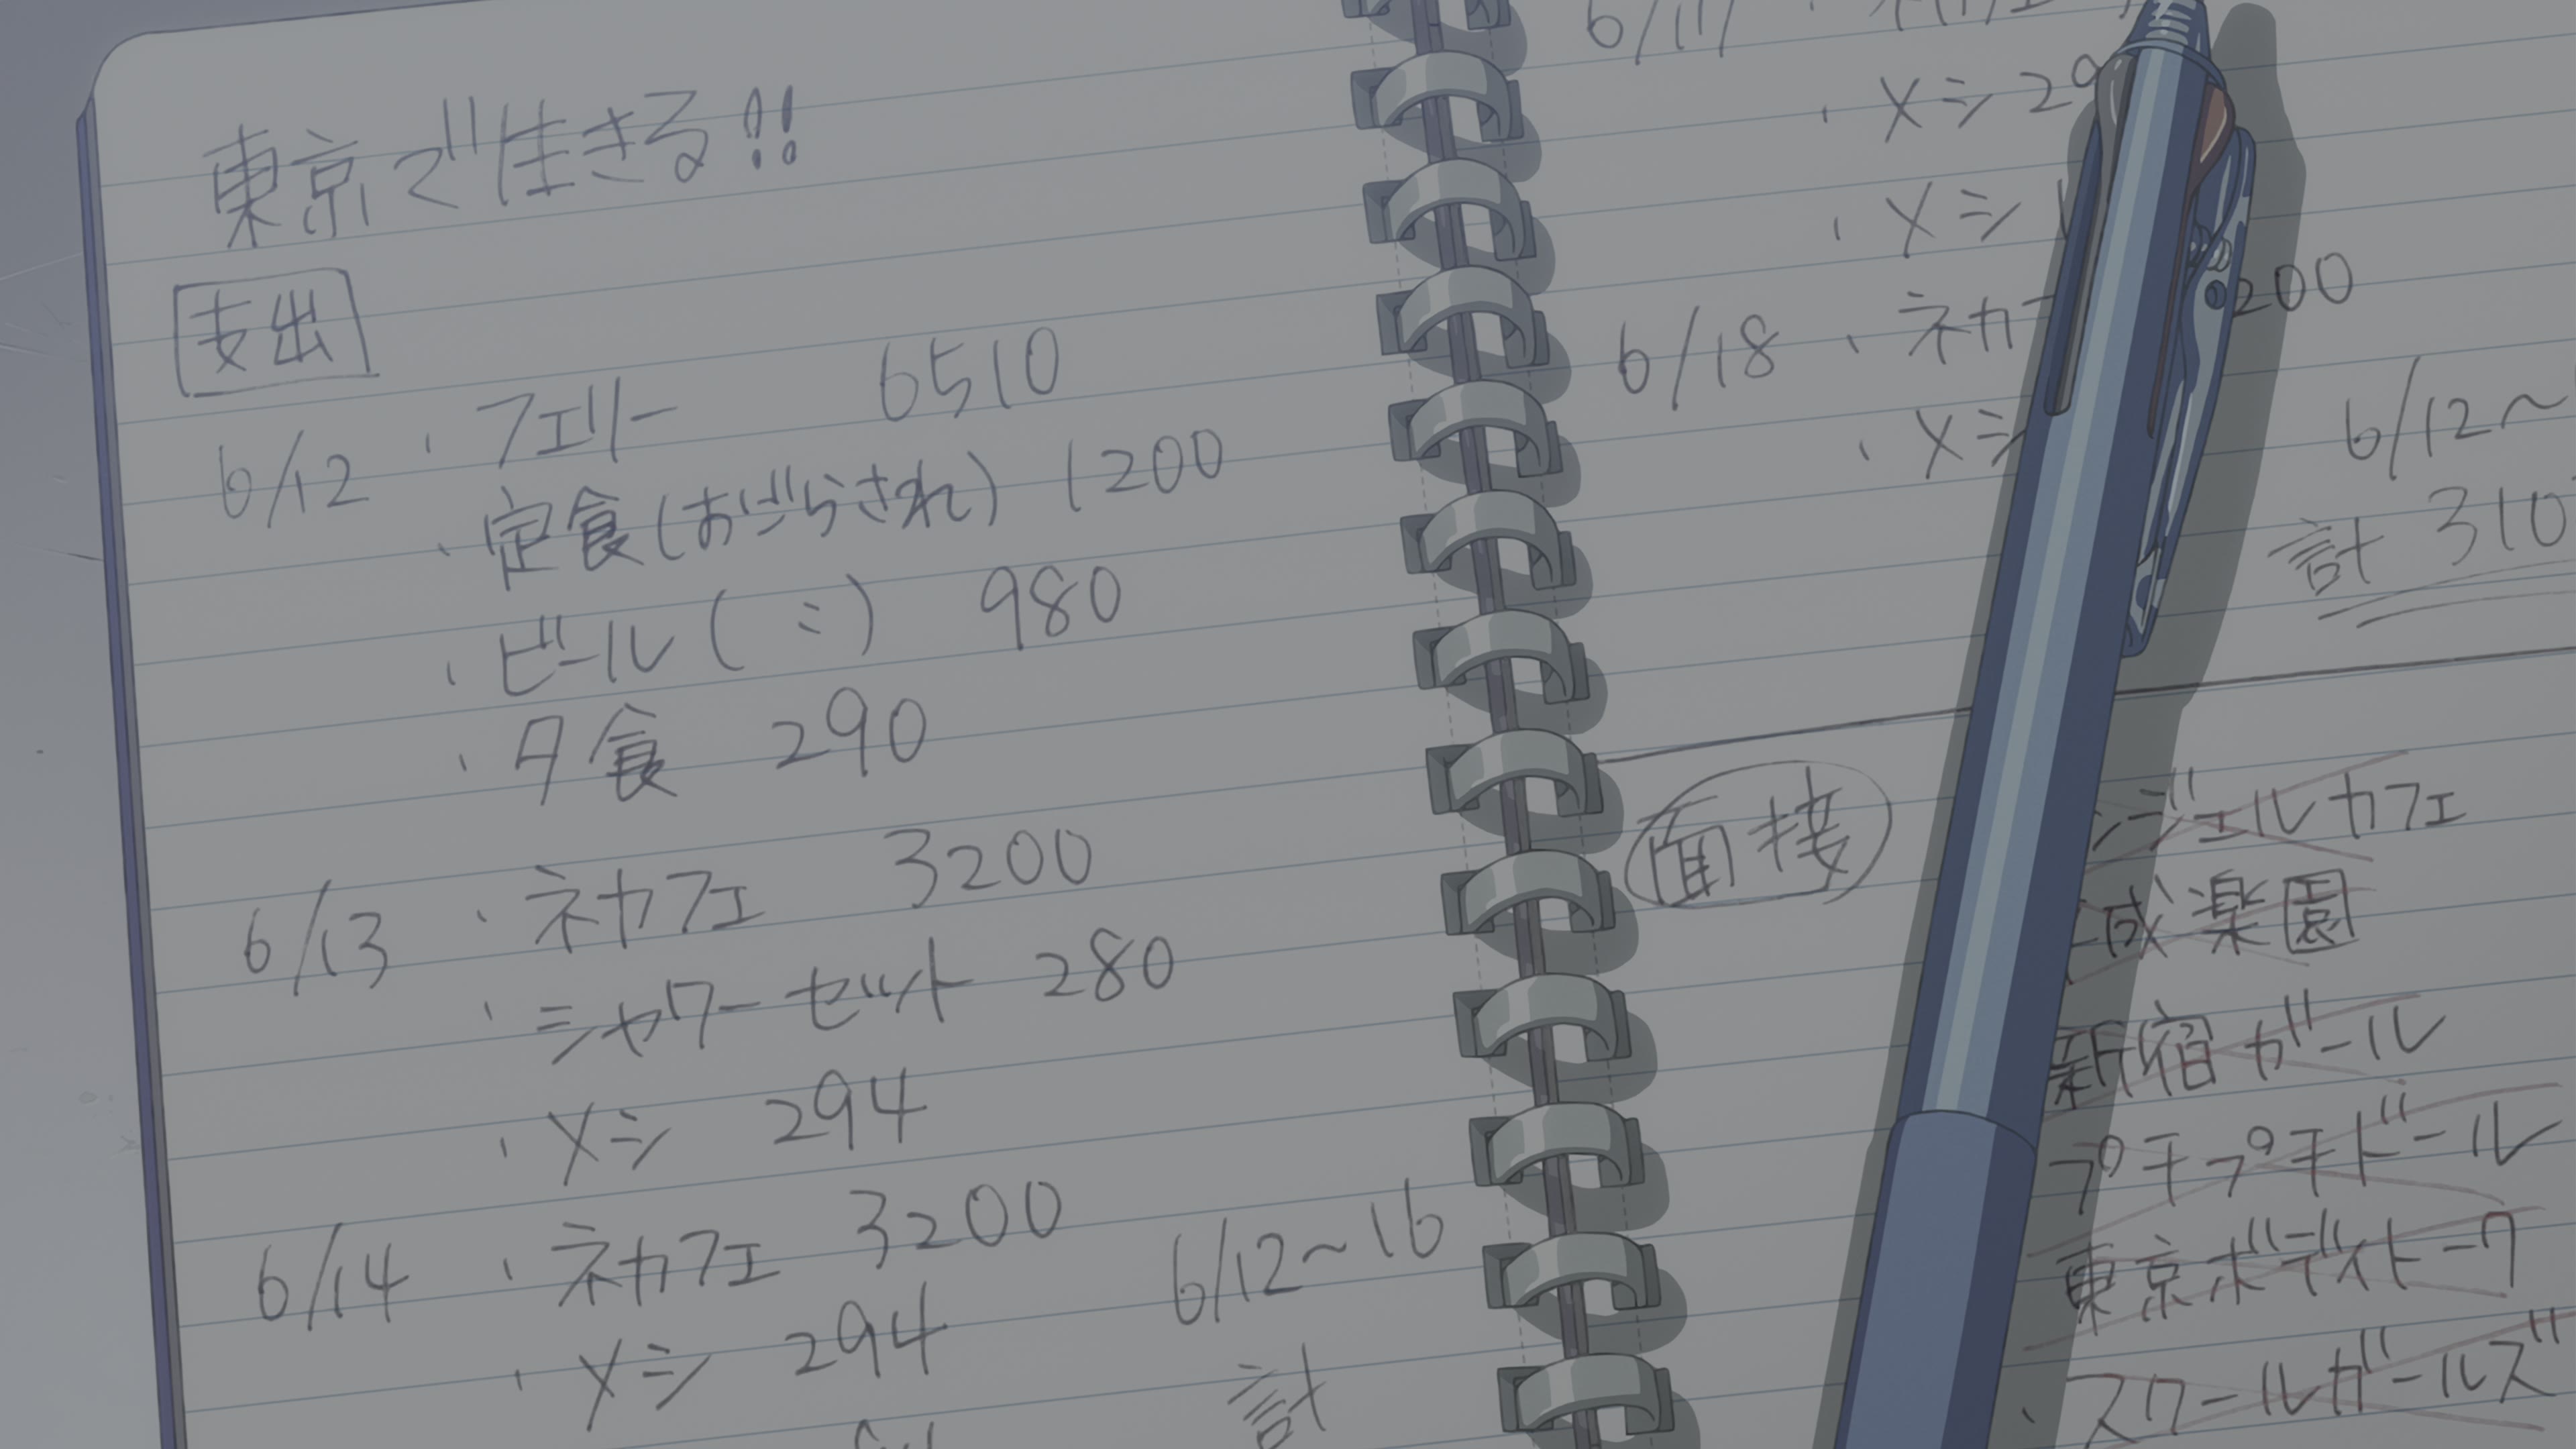 東京で生きる!!
支出
6/12 ・フェリー 6510
・定食(おごらされ) 1200
・ビール(〃) 980
・夕食 290
6/13 ・ネカフェ 3200
・シャワーセット 280
・メシ 294
6/14 ・ネカフェ 3200
・メシ 294
6/12~16
計
6/17
・メシ 29
・メシ
6/18 ・ネカフ 200
・メシ
6/12~
計 310
面接
ンジェルカフェ
成楽園
新宿ガール
プチプチドール
東京ボディトーク
・スクールガールズ